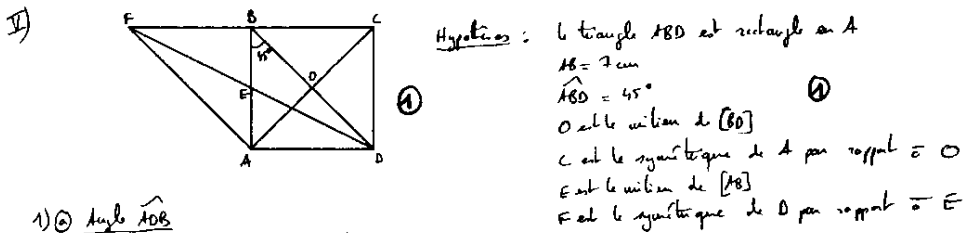 V)
F B C
45°
O
E
①
A D
Hypothèses : le triangle ABD est rectangle en A
AB = 7 cm
ABD = 45°
①
O est le milieu de [BD]
C est le symétrique de A par rapport à O
E est le milieu de [AB]
F est le symétrique de D par rapport à E
1) ⓐ Angle ADB